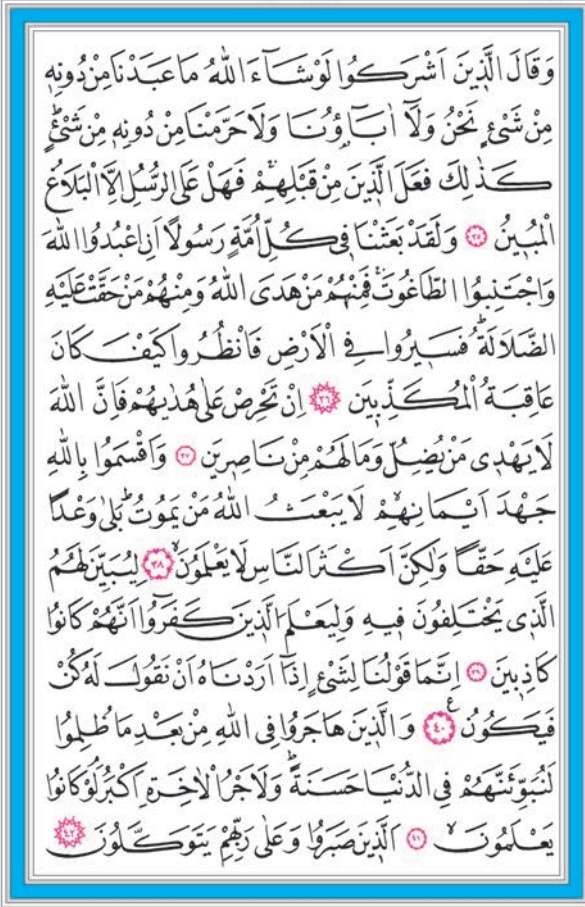 وَقَالَ الَّذ۪ينَ اَشْرَكُوا لَوْ شَٓاءَ اللّٰهُ مَا عَبَدْنَا مِنْ دُونِه۪
مِنْ شَيْءٍ نَحْنُ وَلَٓا اٰبَٓاؤُ۬نَا وَلَا حَرَّمْنَا مِنْ دُونِه۪ مِنْ شَيْءٍۜ
كَذٰلِكَ فَعَلَ الَّذ۪ينَ مِنْ قَبْلِهِمْۚ فَهَلْ عَلَى الرُّسُلِ اِلَّا الْبَلَاغُ
الْمُب۪ينُ ﴿٣٥﴾ وَلَقَدْ بَعَثْنَا ف۪ي كُلِّ اُمَّةٍ رَسُولًا اَنِ اعْبُدُوا اللّٰهَ
وَاجْتَنِبُوا الطَّاغُوتَۚ فَمِنْهُمْ مَنْ هَدَى اللّٰهُ وَمِنْهُمْ مَنْ حَقَّتْ عَلَيْهِ
الضَّلَالَةُۜ فَس۪يرُوا فِي الْاَرْضِ فَانْظُرُوا كَيْفَ كَانَ
عَاقِبَةُ الْمُكَذِّب۪ينَ ﴿٣٦﴾ اِنْ تَحْرِصْ عَلٰى هُدٰيهُمْ فَاِنَّ اللّٰهَ
لَا يَهْد۪ي مَنْ يُضِلُّ وَمَا لَهُمْ مِنْ نَاصِر۪ينَ ﴿٣٧﴾ وَاَقْسَمُوا بِاللّٰهِ
جَهْدَ اَيْمَانِهِمْۙ لَا يَبْعَثُ اللّٰهُ مَنْ يَمُوتُۜ بَلٰى وَعْدًا
عَلَيْهِ حَقًّا وَلٰكِنَّ اَكْثَرَ النَّاسِ لَا يَعْلَمُونَۙ ﴿٣٨﴾ لِيُبَيِّنَ لَهُمُ
الَّذ۪ي يَخْتَلِفُونَ ف۪يهِ وَلِيَعْلَمَ الَّذ۪ينَ كَفَرُٓوا اَنَّهُمْ كَانُوا
كَاذِب۪ينَ ﴿٣٩﴾ اِنَّمَا قَوْلُنَا لِشَيْءٍ اِذَٓا اَرَدْنَاهُ اَنْ نَقُولَ لَهُ كُنْ
فَيَكُونُ۟ ﴿٤٠﴾ وَالَّذ۪ينَ هَاجَرُوا فِي اللّٰهِ مِنْ بَعْدِ مَا ظُلِمُوا
لَنُبَوِّئَنَّهُمْ فِي الدُّنْيَا حَسَنَةًۜ وَلَاَجْرُ الْاٰخِرَةِ اَكْبَرُۢ لَوْ كَانُوا
يَعْلَمُونَۙ ﴿٤١﴾ اَلَّذ۪ينَ صَبَرُوا وَعَلٰى رَبِّهِمْ يَتَوَكَّلُونَ ﴿٤٢﴾